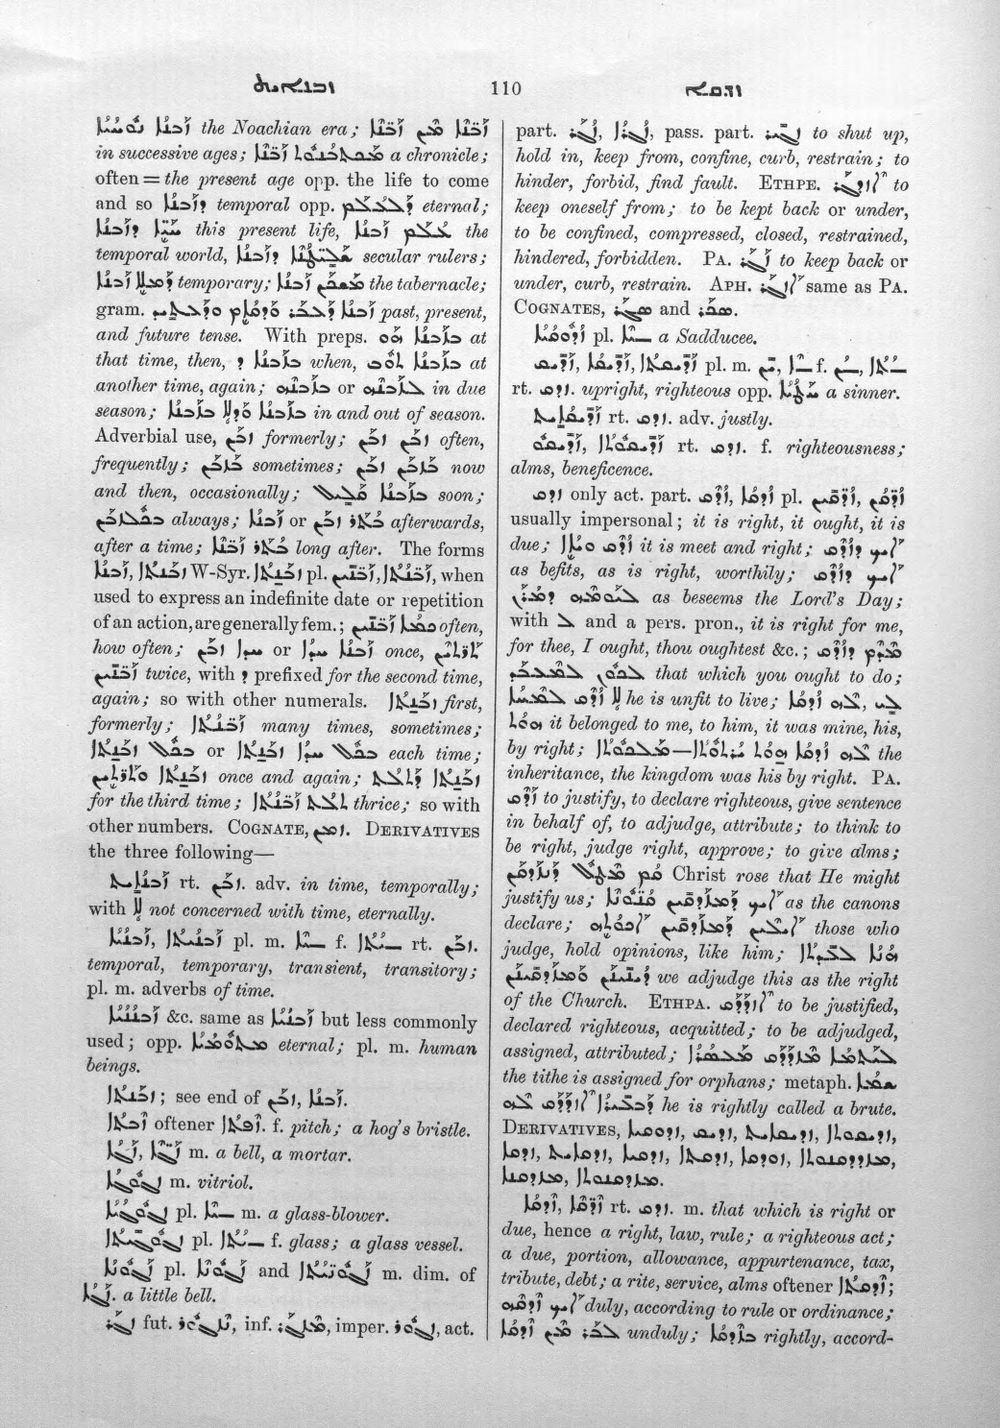 ܙܒܢܐܝܬ 110 ܙܕܩܐ
ܙܒܢܐ ܢܘܚܝܐ the Noachian era; ܙܒܢܐ ܡܢ ܙܒܢܐ
in successive ages; ܡܟܬܒܢܘܬ ܙܒܢܐ a chronicle;
often = the present age opp. the life to come
and so ܕܙܒܢܐ temporal opp. ܕܠܥܠܡ eternal;
ܚܝܐ ܕܙܒܢܐ this present life, ܥܠܡ ܙܒܢܐ the
temporal world, ܫܠܝܛܢܐ ܕܙܒܢܐ secular rulers;
ܙܒܢܐ temporary; ܡܫܟܢ ܙܒܢܐ the tabernacle;
gram. ܙܒܢܐ ܕܥܒܪ ܘܕܩܐܡ ܘܕܥܬܝܕ past, present,
and future tense. With preps. ܒܙܒܢܐ ܗܘ at
that time, then, ܒܙܒܢܐ ܕ when, ܒܙܒܢܐ ܬܘܒ at
another time, again; ܒܙܒܢܗ or ܠܙܒܢܗ in due
season; ܒܙܒܢܐ ܘܕܠܐ ܒܙܒܢܐ in and out of season.
Adverbial use, ܙܒܢ formerly; ܙܒܢ ܙܒܢ often,
frequently; ܒܙܒܢ sometimes; ܙܒܢ ܒܙܒܢ now
and then, occasionally; ܒܙܒܢܐ ܩܠܝܠ soon;
ܒܟܠܙܒܢ always; ܙܒܢܐ or ܒܬܪ ܙܒܢ afterwards,
after a time; ܒܬܪ ܙܒܢܐ long after. The forms
ܙܒܢܐ, ܙܒܢܬܐ W-Syr. ܙܒܢܬܐ pl. ܙܒܢܝܢ, ܙܒܢܬܐ, when
used to express an indefinite date or repetition
of an action, are generally fem.; ܟܡܐ ܙܒܢܝܢ often,
how often; ܙܒܢ ܚܕܐ or ܙܒܢܐ ܚܕܐ once, ܬܪܬܝܢ
ܙܒܢܝܢ twice, with ܕ prefixed for the second time,
again; so with other numerals. ܙܒܢܬܐ first,
formerly; ܙܒܢܬܐ many times, sometimes;
ܙܒܢܬܐ ܒܟܠ or ܒܟܠ ܚܕܐ ܙܒܢܬܐ each time;
ܙܒܢܬܐ ܘܬܪܬܝܢ once and again; ܙܒܢܬܐ ܕܬܠܬ
for the third time; ܬܠܬ ܙܒܢܬܐ thrice; so with
other numbers. COGNATE, ܙܡܢ. DERIVATIVES
the three following—
ܙܒܢܐܝܬ rt. ܙܒܢ. adv. in time, temporally;
with ܠܐ not concerned with time, eternally.
ܙܒܢܝܐ, ܙܒܢܝܬܐ pl. m. f. rt. ܙܒܢ.
temporal, temporary, transient, transitory;
pl. m. adverbs of time.
ܙܒܢܢܝܐ &c. same as ܙܒܢܝܐ but less commonly
used; opp. ܡܬܘܡܝܐ eternal; pl. m. human
beings.
ܙܒܢܬܐ; see end of ܙܒܢ, ܙܒܢܐ.
ܙܒܬܐ oftener ܙܦܬܐ. f. pitch; a hog's bristle.
ܙܓܐ, ܙܓܐ m. a bell, a mortar.
ܙܓܘܓܐ m. vitriol.
ܙܓܘܓܝܐ pl. m. a glass-blower.
ܙܓܘܓܝܬܐ pl. f. glass; a glass vessel.
ܙܓܘܢܐ pl. ܙܓܘܢܐ and ܙܓܘܢܝܬܐ m. dim. of
ܙܓܐ. a little bell.
ܙܓܪ fut. ܢܙܓܘܪ, inf. ܡܙܓܪ, imper. ܙܓܘܪ, act.
part. ܙܓܪ, ܙܓܪܐ, pass. part. ܙܓܝܪ to shut up,
hold in, keep from, confine, curb, restrain; to
hinder, forbid, find fault. ETHPE. ܐܙܕܓܪ to
keep oneself from; to be kept back or under,
to be confined, compressed, closed, restrained,
hindered, forbidden. PA. ܙܓܪ to keep back or
under, curb, restrain. APH. ܐܙܓܪ same as PA.
COGNATES, ܣܓܪ and ܣܟܪ.
ܙܕܘܩܝܐ pl. a Sadducee.
ܙܕܝܩ, ܙܕܝܩܐ, ܙܕܝܩܬܐ pl. m. f.
rt. ܙܕܩ. upright, righteous opp. ܚܛܝܐ a sinner.
ܙܕܝܩܐܝܬ rt. ܙܕܩ. adv. justly.
ܙܕܝܩܘ, ܙܕܝܩܘܬܐ rt. ܙܕܩ. f. righteousness;
alms, beneficence.
ܙܕܩ only act. part. ܙܕܩ, ܙܕܩܐ pl. ܙܕܩܝܢ, ܙܕܩܢ
usually impersonal; it is right, it ought, it is
due; ܙܕܩ ܘܝܐܐ it is meet and right; ܐܝܟ ܕܙܕܩ
as befits, as is right, worthily; ܐܝܟ ܕܙܕܩ
ܠܝܘܡܗ ܕܡܪܢ as beseems the Lord's Day;
with ܠ and a pers. pron., it is right for me,
for thee, I ought, thou oughtest &c.; ܡܕܡ ܕܙܕܩ
ܠܟܘܢ ܠܡܥܒܕ that which you ought to do;
ܠܐ ܙܕܩ ܠܡܚܐ he is unfit to live; ܙܕܩܐ ܠܝ, ܠܗ
ܗܘܬ it belonged to me, to him, it was mine, his,
by right; ܝܪܬܘܬܐ—ܡܠܟܘܬܐ ܙܕܩܐ ܗܘܬ ܠܗ the
inheritance, the kingdom was his by right. PA.
ܙܕܩ to justify, to declare righteous, give sentence
in behalf of, to adjudge, attribute; to think to
be right, judge right, approve; to give alms;
ܩܡ ܡܛܠ ܕܢܙܕܩܢ Christ rose that He might
justify us; ܐܝܟ ܕܡܙܕܩܝܢ ܩܢܘܢܐ as the canons
declare; ܐܝܠܝܢ ܕܡܙܕܩܝܢ ܐܟܘܬܗ those who
judge, hold opinions, like him; ܗܢܐ ܠܥܕܬܐ
ܕܝܢܝܢܢ ܘܡܙܕܩܝܢܢ we adjudge this as the right
of the Church. ETHPA. ܐܙܕܕܩ to be justified,
declared righteous, acquitted; to be adjudged,
assigned, attributed; ܠܝܬܡܐ ܡܙܕܕܩ ܡܥܣܪܐ
the tithe is assigned for orphans; metaph. ܫܡܐ
ܕܒܥܝܪܐ ܐܙܕܕܩ ܠܗ he is rightly called a brute.
DERIVATIVES, ܙܕܘܩܝܐ, ܙܕܝܩ, ܙܕܝܩܐܝܬ, ܙܕܝܩܘܬܐ,
ܙܕܩܐ, ܙܕܩܐܝܬ, ܙܕܩܝܐ, ܙܕܩܬܐ, ܙܘܕܩܐ, ܡܙܕܕܩܢܘܬܐ,
ܡܙܕܩܢܐ, ܡܙܕܩܢܘܬܐ.
ܙܕܩܐ, ܙܕܩܐ rt. ܙܕܩ. m. that which is right or
due, hence a right, law, rule; a righteous act;
a due, portion, allowance, appurtenance, tax,
tribute, debt; a rite, service, alms oftener ܙܕܩܬܐ;
ܐܝܟ ܙܕܩܗ duly, according to rule or ordinance;
ܠܒܪ ܡܢ ܙܕܩܐ unduly; ܒܙܕܩܐ rightly, accord-